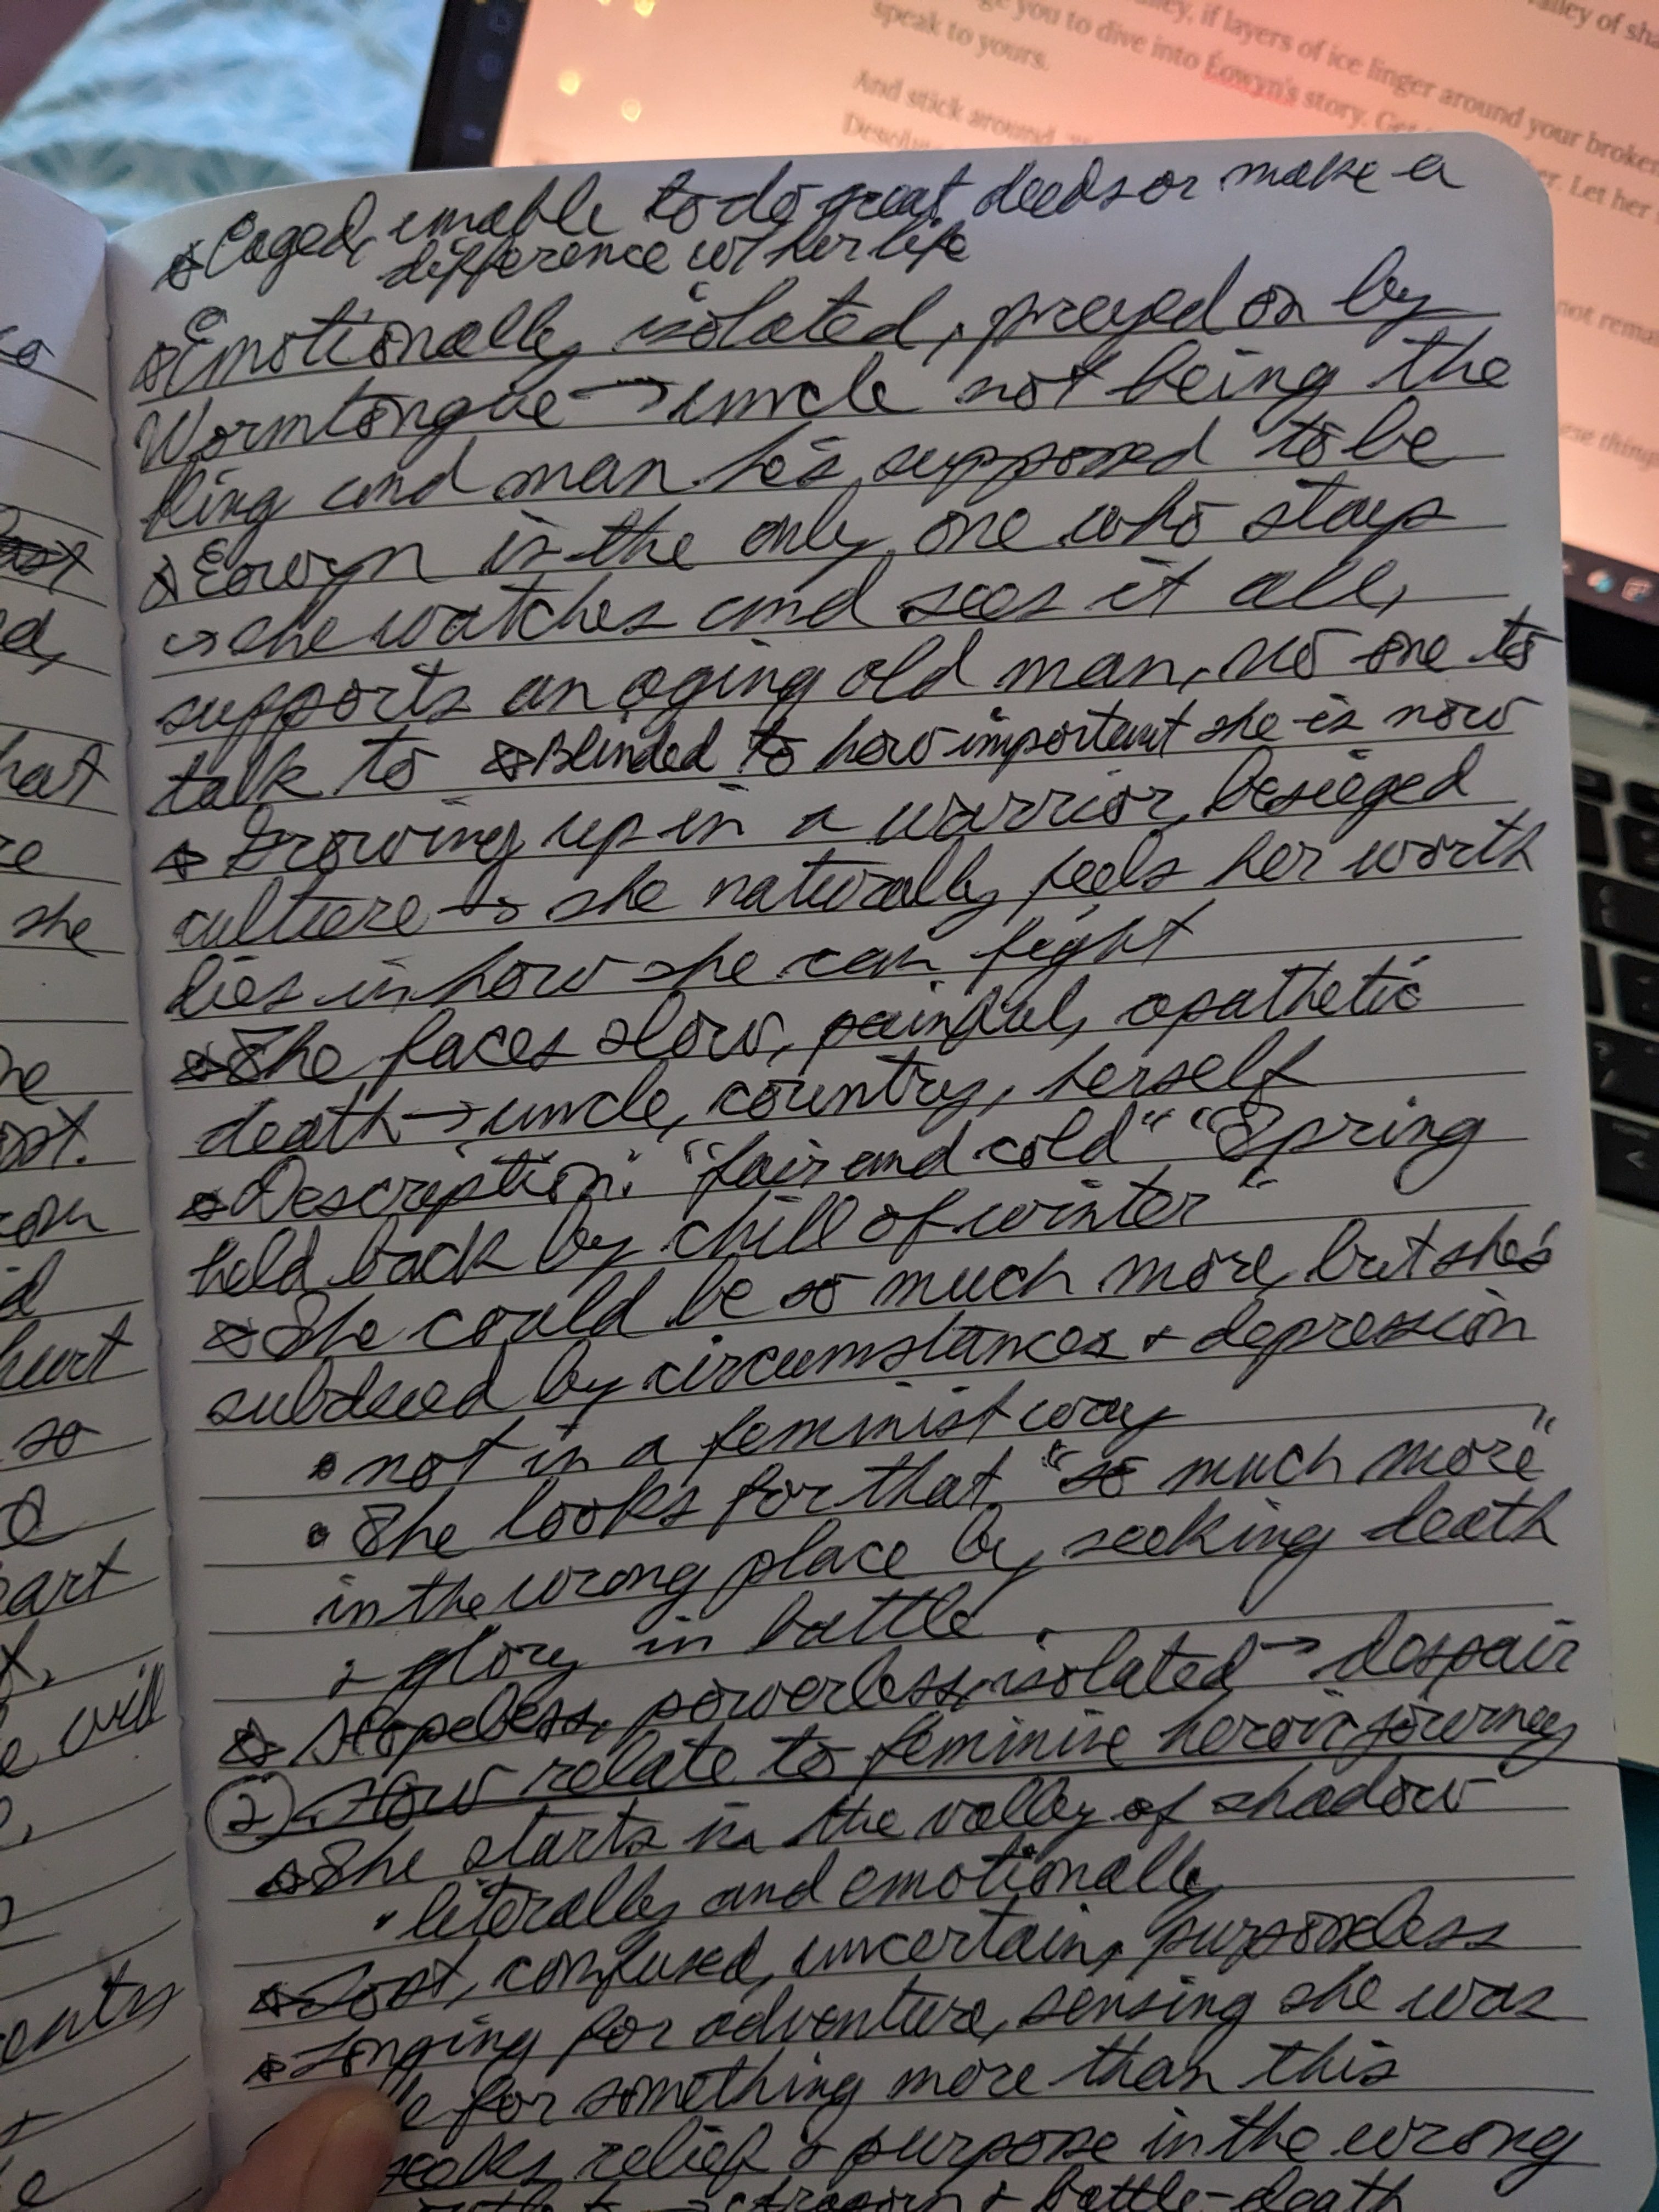 valley, if layers of ice linger around your broken
you to dive into Éowyn's story. Get
speak to yours.
And stick around
valley of sha
her. Let her
not rema
ese thing
☆Caged, unable to do great deeds or make a
difference w/ her life
☆Emotionally isolated, preyed on by
Wormtongue → uncle not being the
king and man he's supposed to be
☆Eowyn is the only one who stays
→ she watches and sees it all,
supports an aging old man, no one to
talk to ☆Blinded to how important she is now
☆Growing up in a warrior, besieged
culture → she naturally feels her worth
lies in how she can fight
☆She faces slow, painful, apathetic
death → uncle, country, herself
☆Description: "fair and cold" "Spring
held back by chill of winter"
☆She could be so much more, but she's
subdued by circumstances + depression
• not in a feminist way
• She looks for that "so much more"
in the wrong place by seeking death
+ glory in battle.
☆Hopeless, powerless, isolated → despair
2. How relate to feminine heroic journey
☆She starts in the valley of shadow
• literally and emotionally
☆Lost, confused, uncertain, purposeless
☆Longing for adventure, sensing she was
for something more than this
seeks relief + purpose in the wrong
→ Aragorn + battle-death
she
hurt
so
will